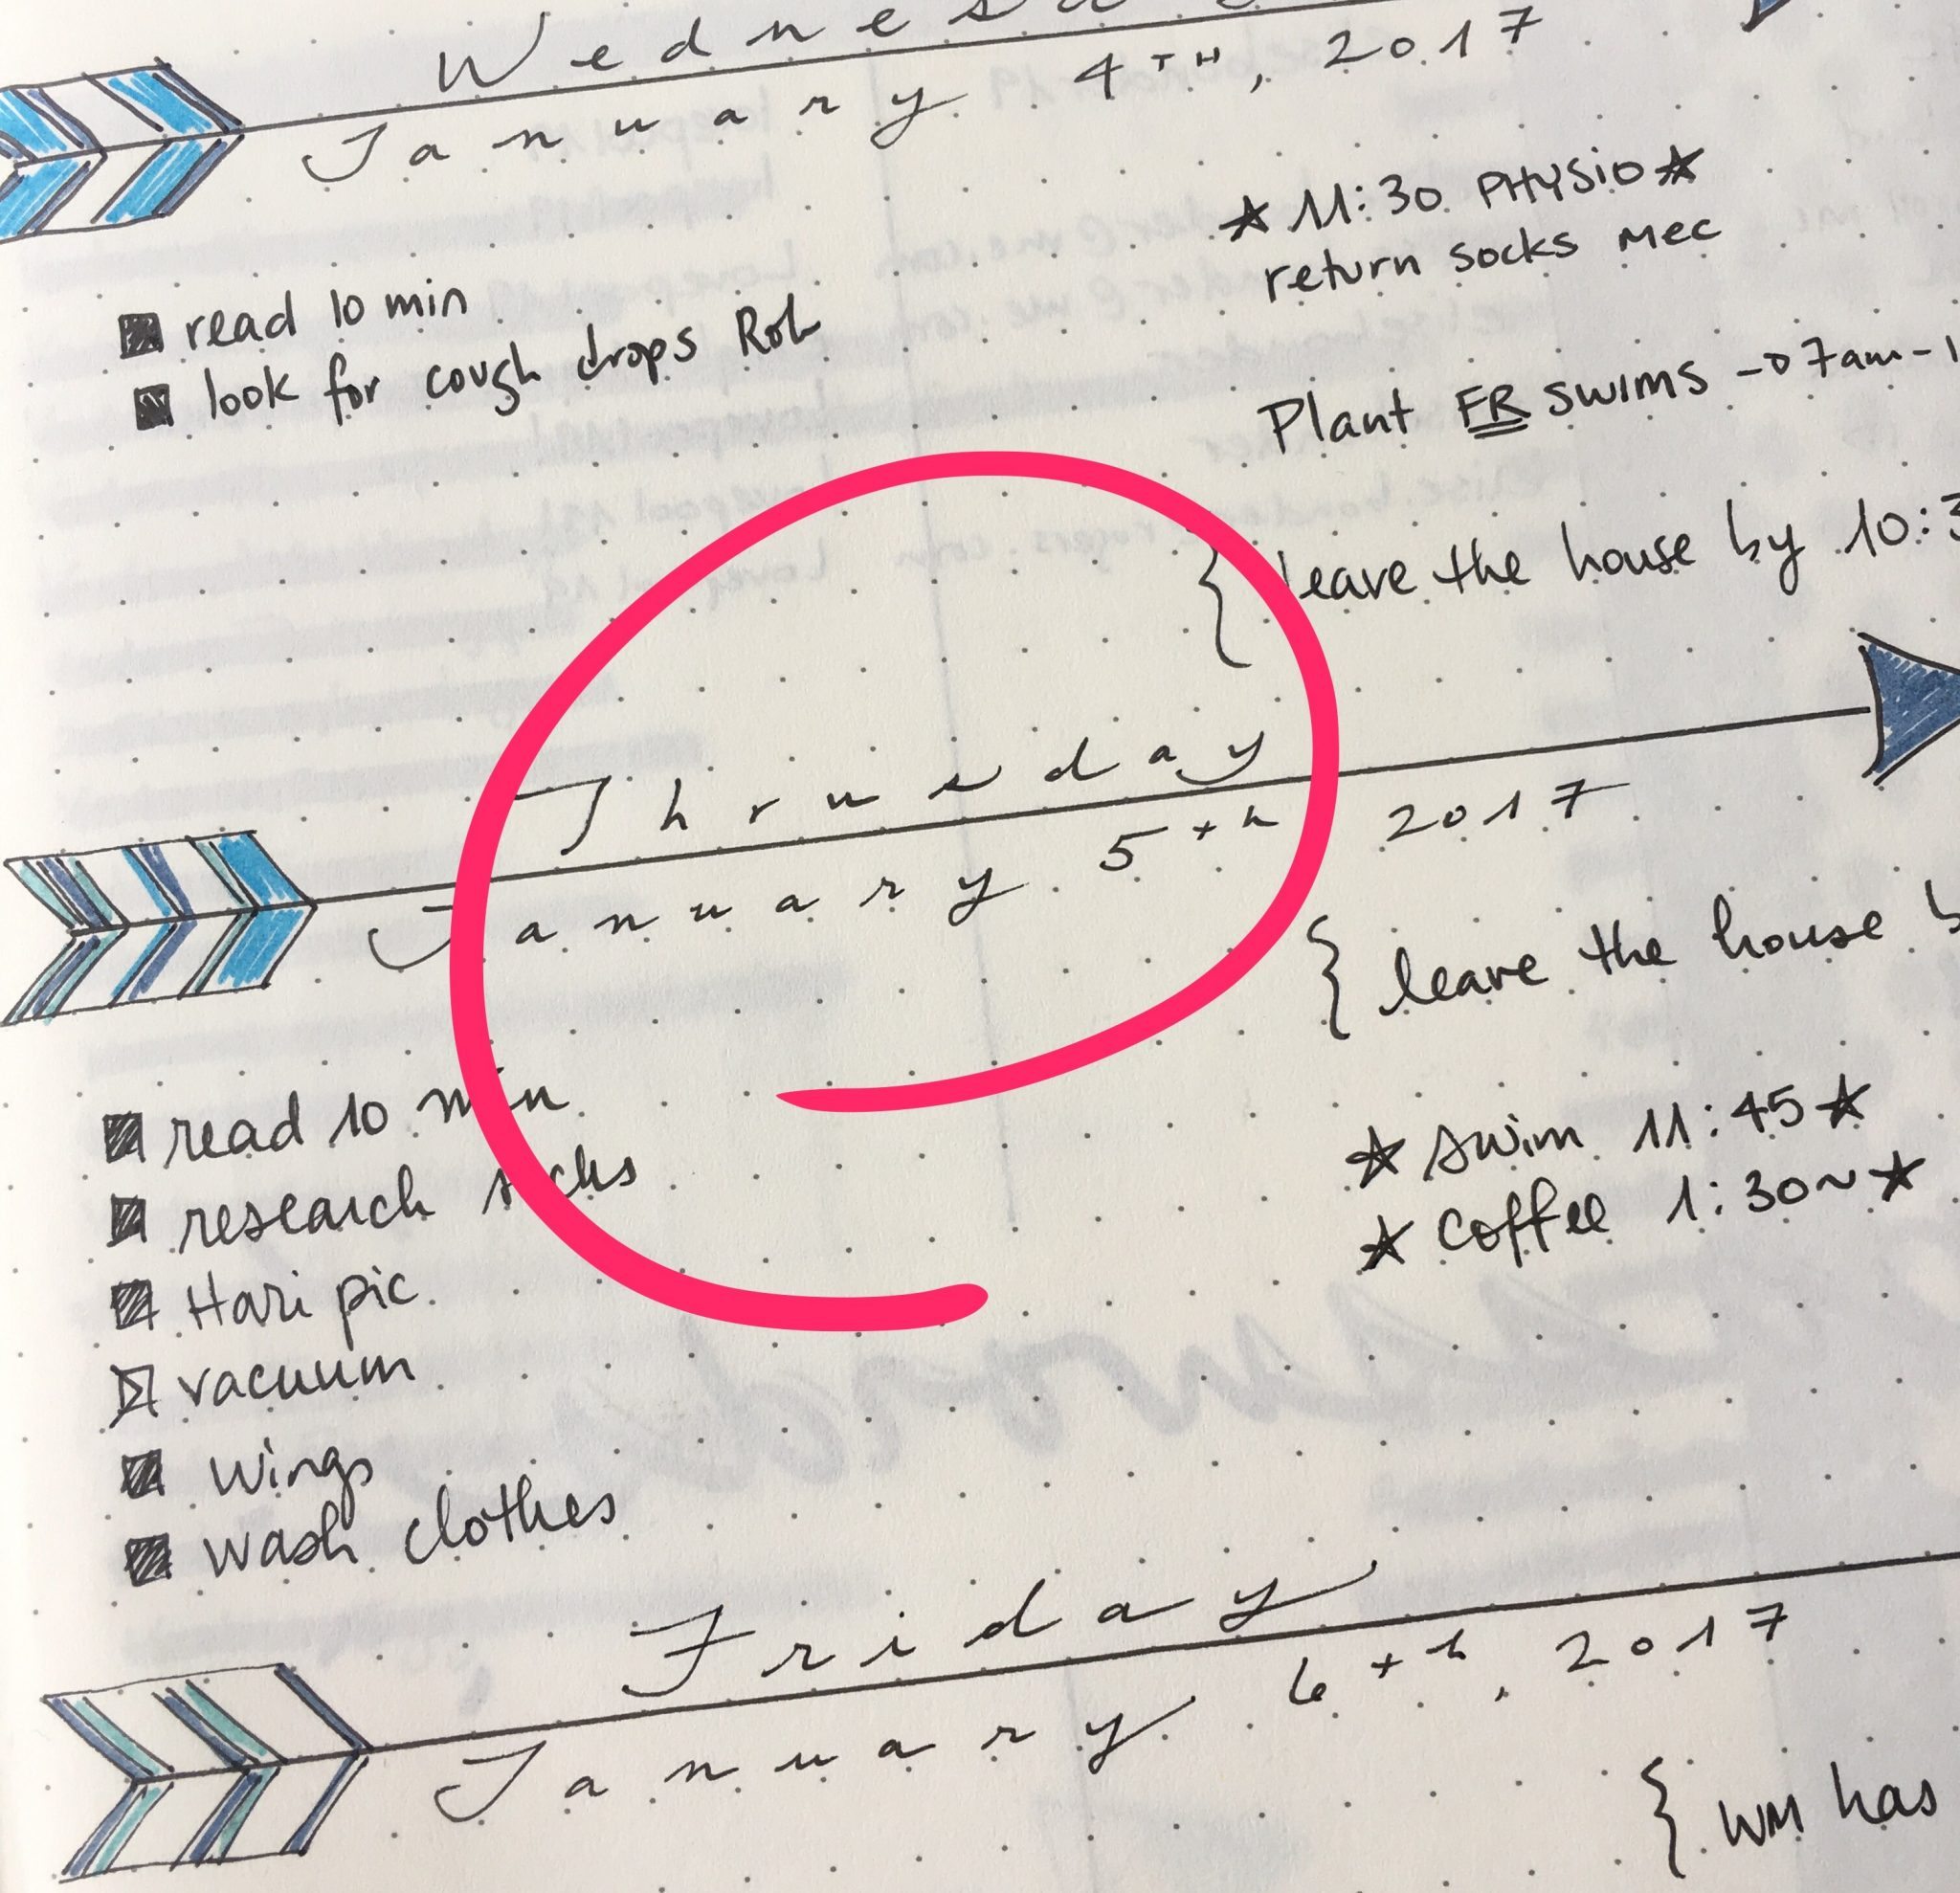 Wednesd
January 4TH, 2017
★ 11:30 PHYSIO ★
return socks MEC
■ read 10 min
■ look for cough drops Rob
Plant FR SWIMS 7am-1
{ leave the house by 10:3
Thrusday
January 5th 2017
{ leave the house b
■ read 10 min
■ research socks
■ Hari pic
vacuum
■ wings
■ wash clothes
★ Swim 11:45 ★
★ Coffee 1:30~ ★
Friday
January 6th, 2017
{ WM has